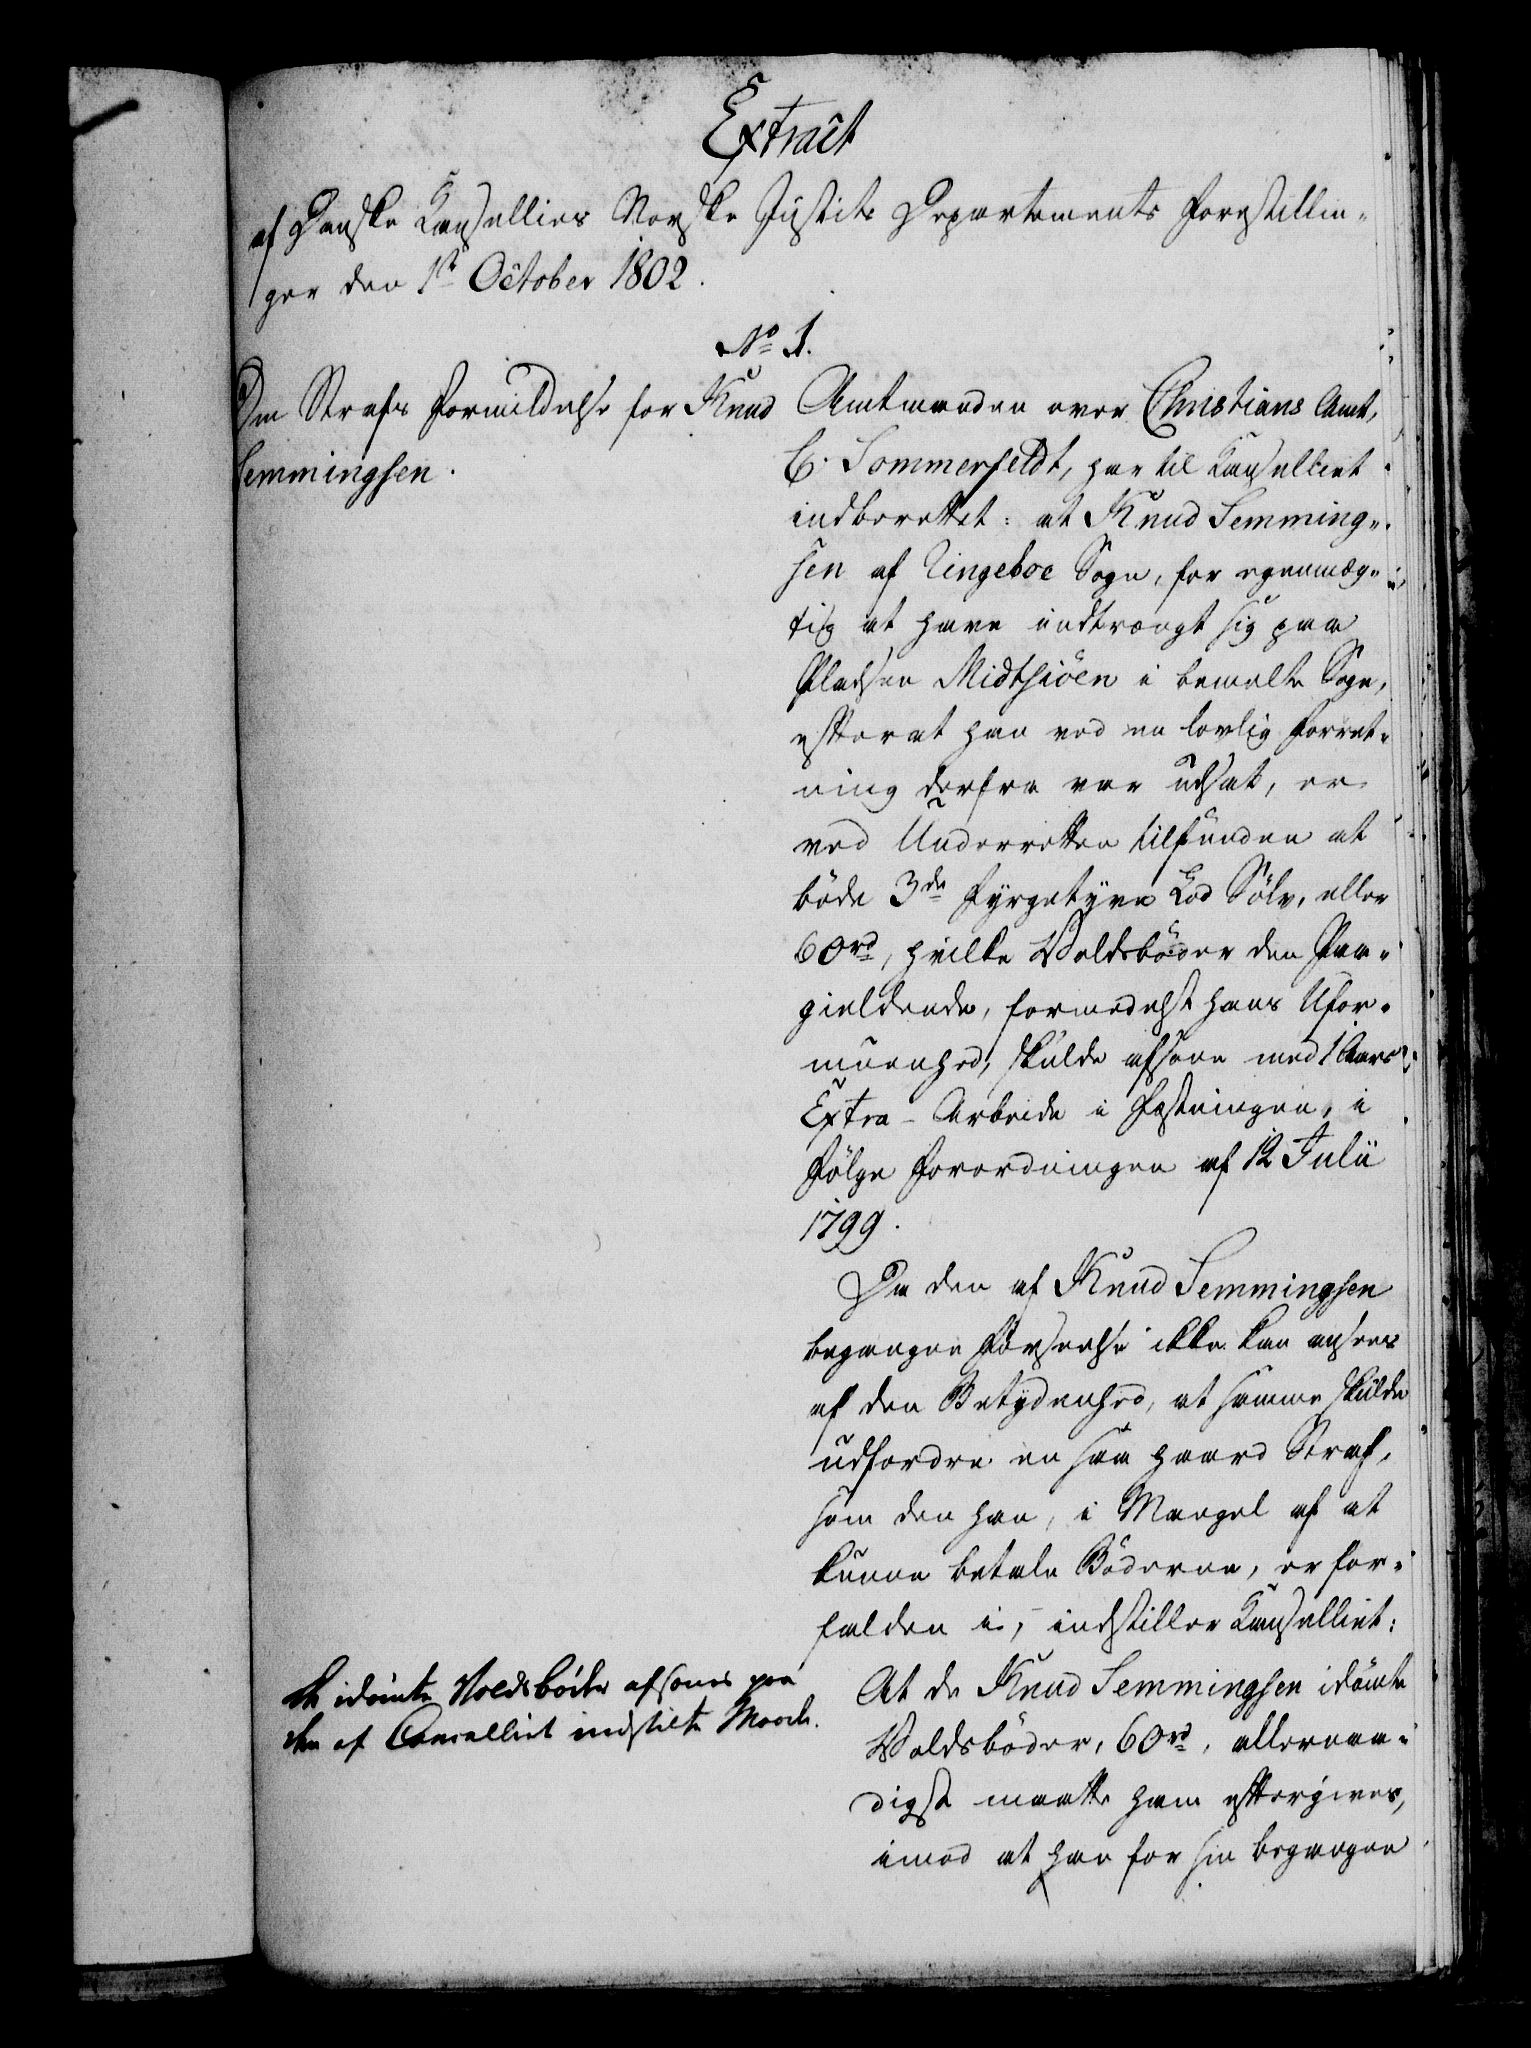 Extract
af Danske Kanselliets Norske Justits Departements Forestillin-
ger den 1ste October 1802.
No 1.
Om Strafs Formildelse for Knud
Semmingsen.
Amtmanden over Christians Amt,
C. Sommerfeldt, har til Kanselliet
indberettet: at Knud Semming-
sen af Ringeboe Sogn, for egenmæg-
tig at have indtrængt sig paa
Pladsen Midtsiöen i bemeldte Sogn,
efterat han ved en lovlig Forret-
ning derfra var udsat, er
ved Underretten tilfunden at
böde 3de Fyrgetyve Lod Sölv, eller
60rd, hvilke Voldsböder den Paa-
gieldende, formedelst hans Ufor-
muenhed, skulde afsone med 1 Aars
Extra-Arbeide i Fæstningen, i
Fölge Forordningen af 12 Julii
1799.
Da den af Knud Semmingsen
begangne Forseelse ikke kan ansees
af den Betydenhed, at samme skulde
udfordre en saa haard Straf,
som den han, i Mangel af at
kunne betale Böderne, er for-
falden i, indstiller Kanselliet:
At de Knud Semmingsen idömte
Voldsböder, 60rd, allernaa-
digst maatte ham eftergives,
imod at han for sin begangne
De idömte Voldsböder afsones paa
den af Cancelliet indstilte Maade.